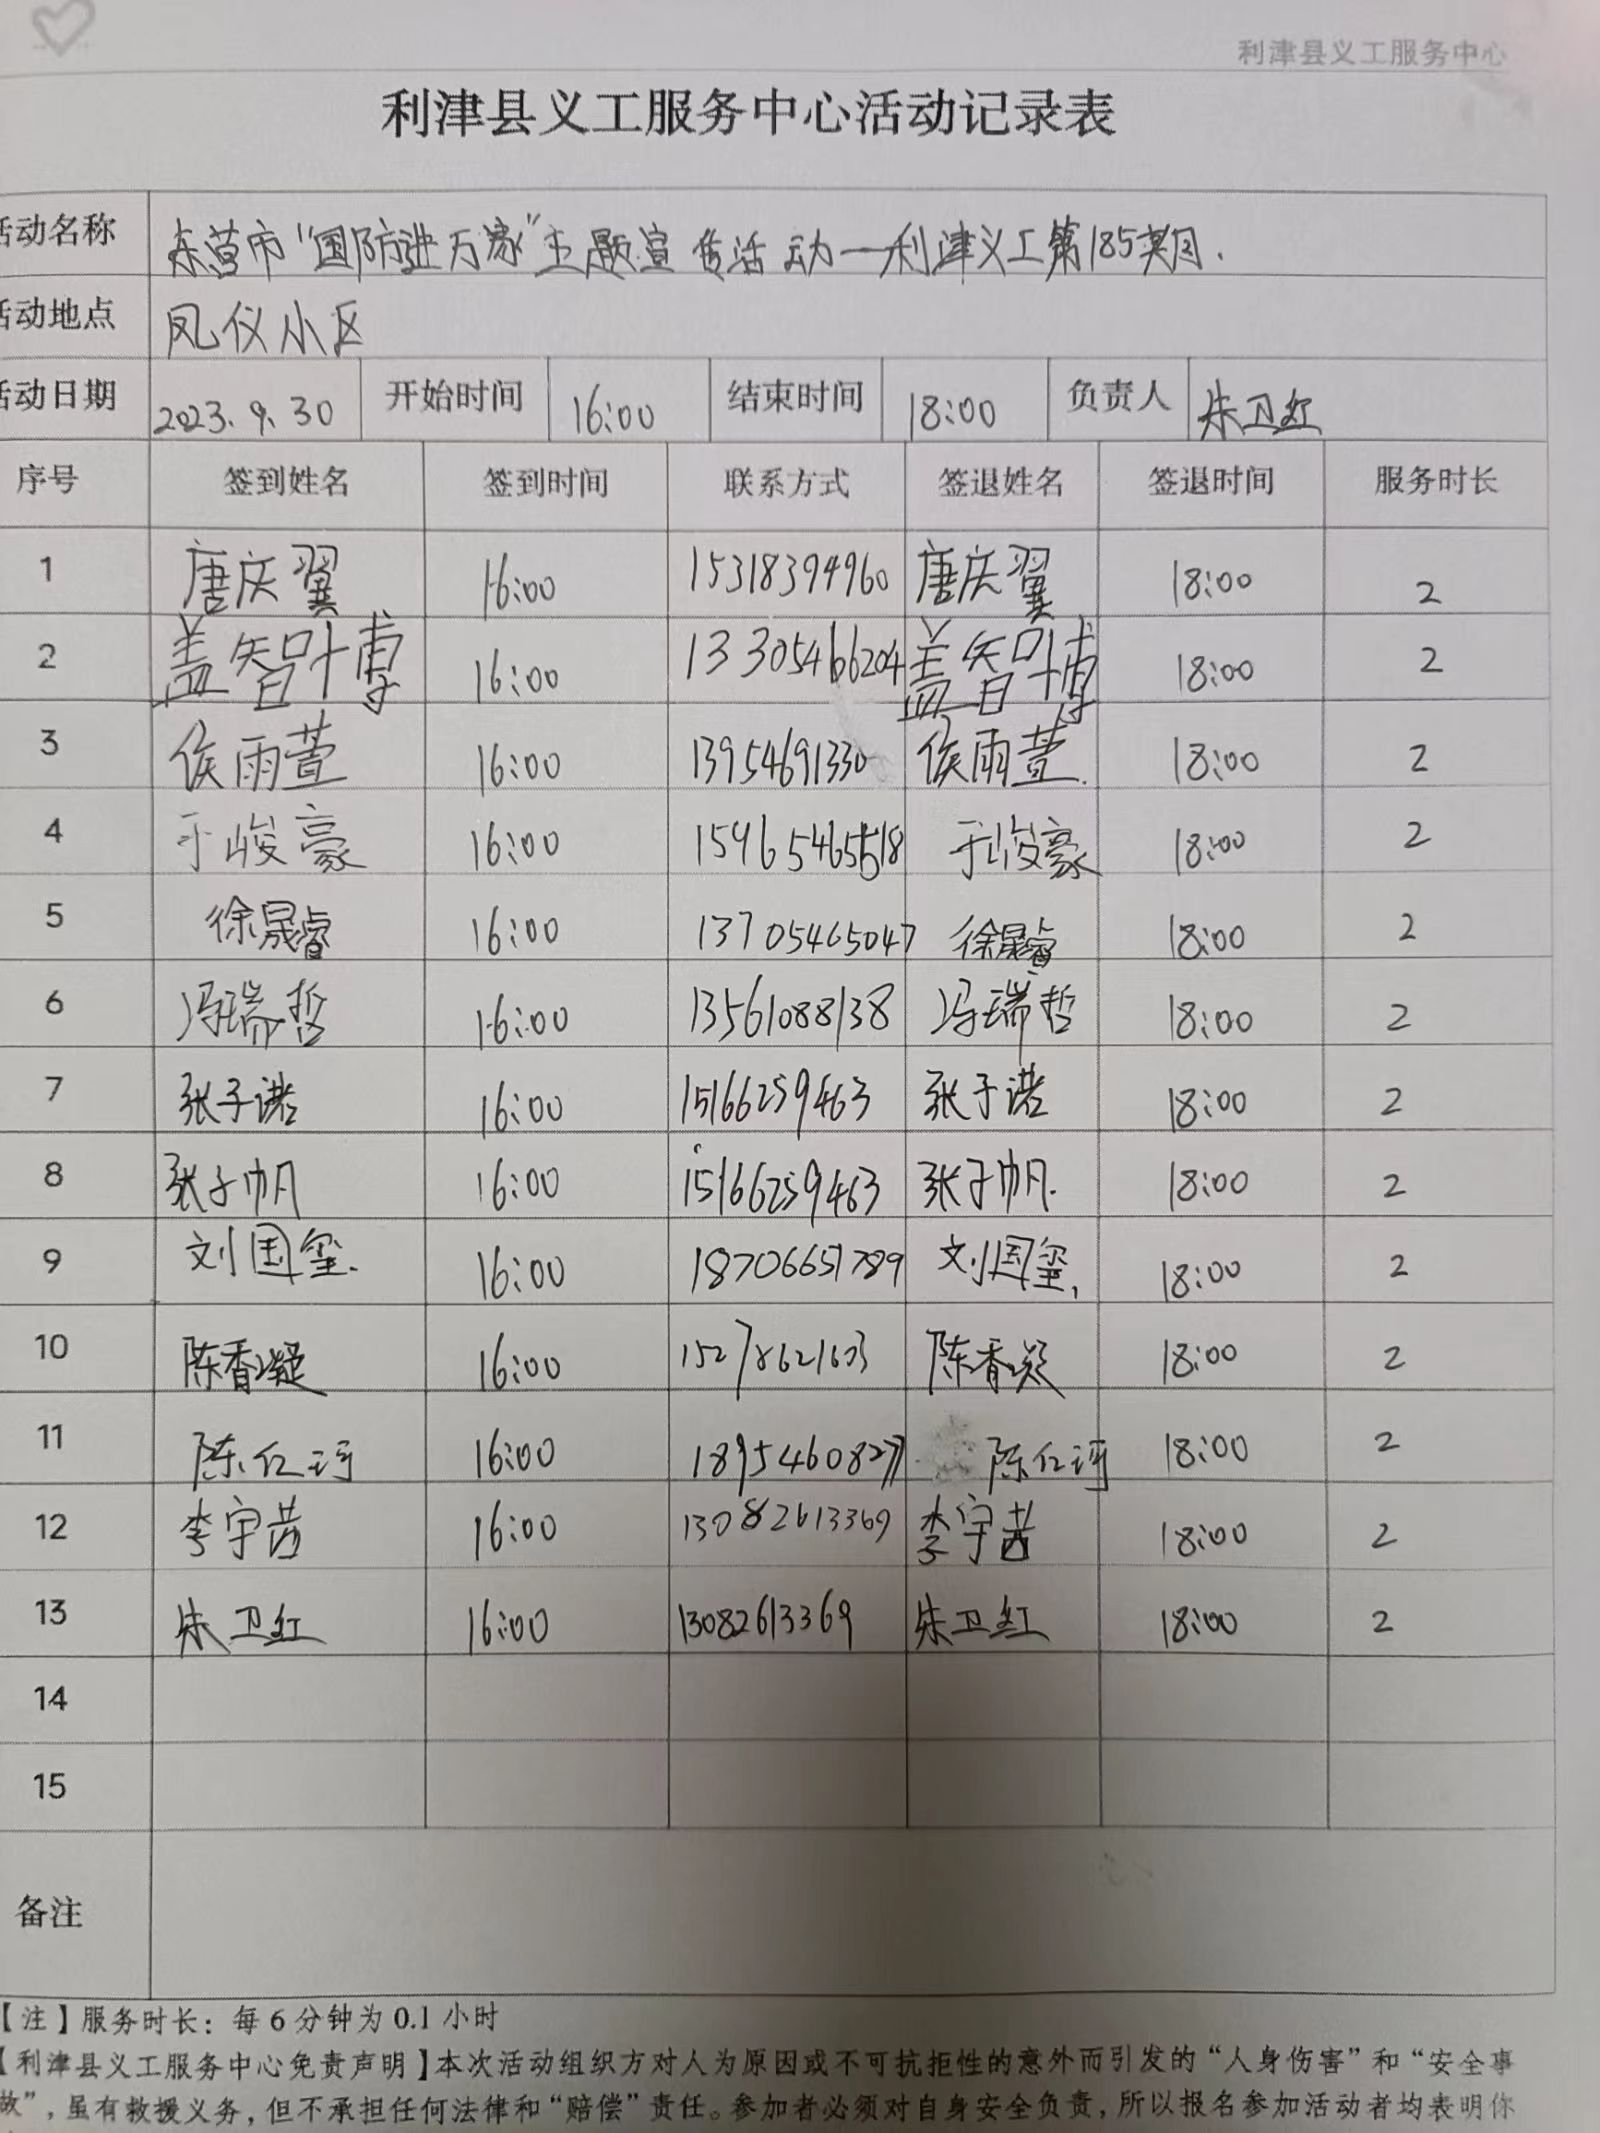 利津县义工服务中心
利津县义工服务中心活动记录表
活动名称 东营市“国防进万家”主题宣传活动一利津义工第185期.
活动地点 凤仪小区
活动日期 2023.9.30 开始时间 16:00 结束时间 18:00 负责人 朱卫红
序号 签到姓名 签到时间 联系方式 签退姓名 签退时间 服务时长
1 唐庆翼 16:00 15318394960 唐庆翼 18:00 2
2 盖智博 16:00 13305466204 盖智博 18:00 2
3 侯雨萱 16:00 13954691330 侯雨萱. 18:00 2
4 于峻豪 16:00 于峻豪 18:00 2
5 徐晟睿 16:00 13705465047 徐晟睿 18:00 2
6 冯瑞哲 16:00 13561088138 冯瑞哲 18:00 2
7 张子诺 16:00 15166259463 张子诺 18:00 2
8 张子帆 16:00 15166259463 张子帆. 18:00 2
9 刘国玺. 16:00 18706651789 刘国玺, 18:00 2
10 陈香凝 16:00 陈香凝 18:00 2
11 陈仁 16:00 陈仁 18:00 2
12 李宇茜 16:00 13082613369 李宇茜 18:00 2
13 朱卫红 16:00 13082613369 朱卫红 18:00 2
14
15
备注
【注】服务时长：每6分钟为0.1小时
【利津县义工服务中心免责声明】本次活动组织方对人为原因或不可抗拒性的意外而引发的“人身伤害”和“安全事
故”，虽有救援义务，但不承担任何法律和“赔偿”责任。参加者必须对自身安全负责，所以报名参加活动者均表明你